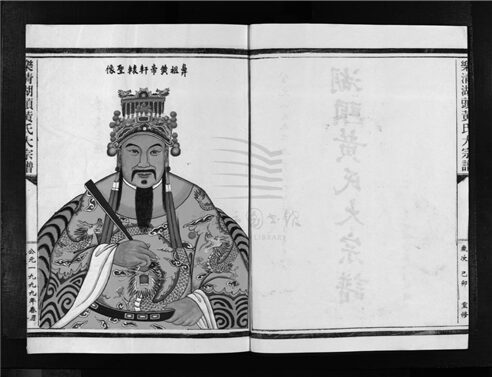 樂清湖頭黃氏大宗譜
歲次 己卯 重修
湖頭黃氏大宗譜
鼻祖黃帝軒轅聖像
樂清湖頭黃氏大宗譜
公元一九九九年春月
LIBRARY